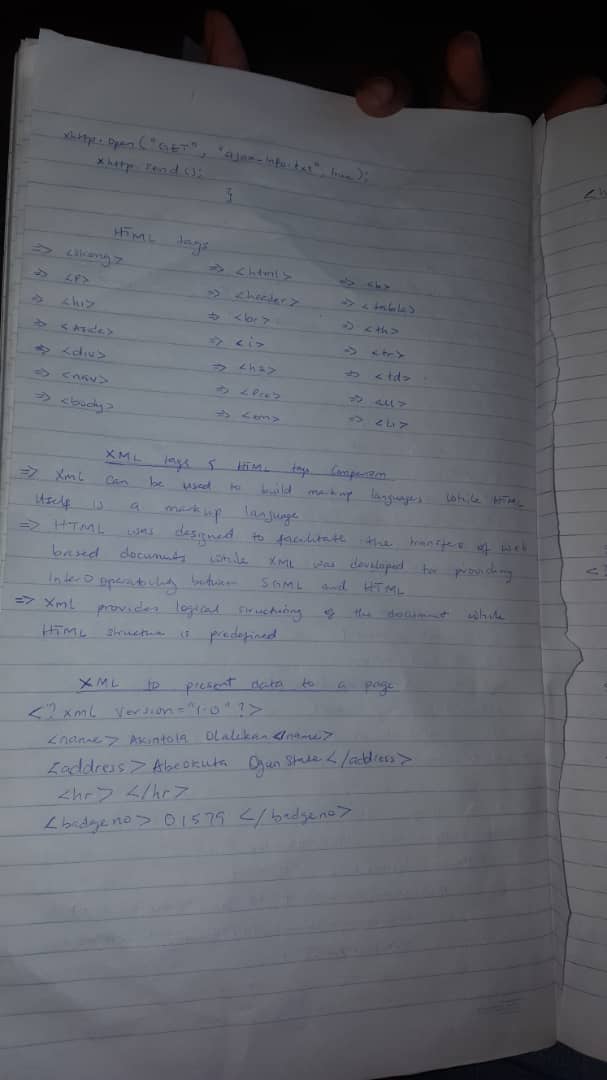 xhttp.open("GET", "ajax-info.txt", true);
xhttp.send();
}
HTML tags
=> <strong> => <html> => <b>
=> <P> => <header> => <table>
=> <h1> => => <th>
=> <Aside> => <i> => <tr>
=> <div> => <h2> => <td>
=> <nav> => <Pre> => <ul>
=> <body> => <em> => <li>
XML tags & HTML tags Comparism
=> Xml can be used to build markup languages while HTML
itself is a markup language
=> HTML was designed to facilitate the transfer of web
based documents while XML was developed for providing
InterOoperability between SGML and HTML
=> Xml provides logical structuring of the document while
HTML structure is predefined
XML to present data to a page
<? xml version="1.0" ?>
<name> Akintola Olalekan <name>
<address> Abeokuta Ogun State </address>
<hr> </hr>
<badgeno> 01579 </badgeno>